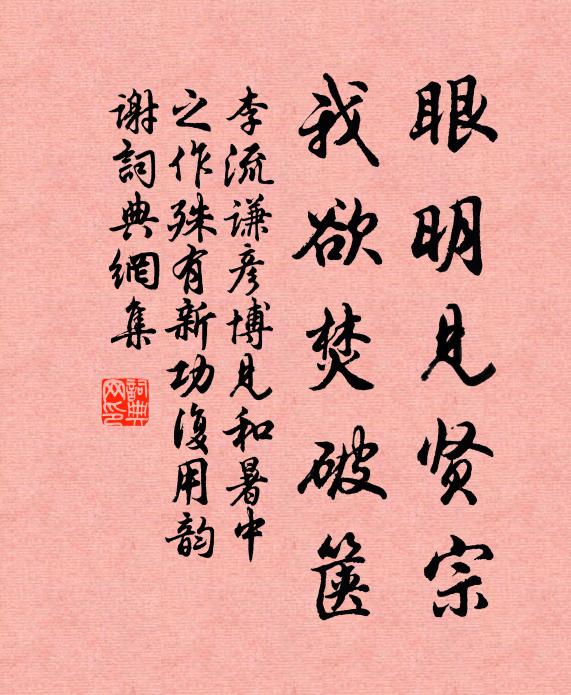 眼明见贤宗
我欲焚破箧
李流谦彦博见和暑中
之作殊有新功复用韵
谢詞典網集
詞典网印